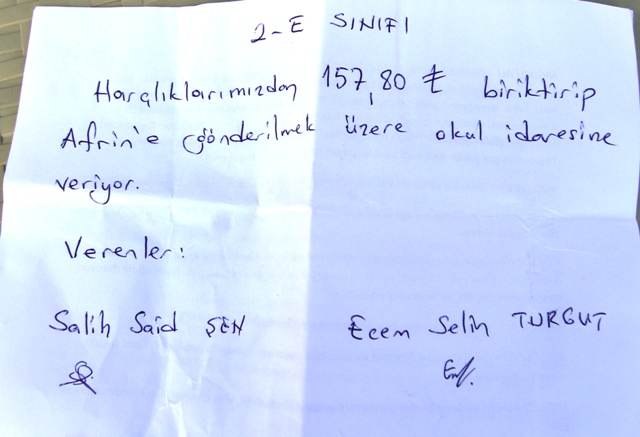 2-E SINIFI
Harçlıklarımızdan 157,80 ₺ biriktirip
Afrin'e gönderilmek üzere okul idaresine
veriyor.
Verenler:
Salih Said ŞEN Ecem Selin TURGUT